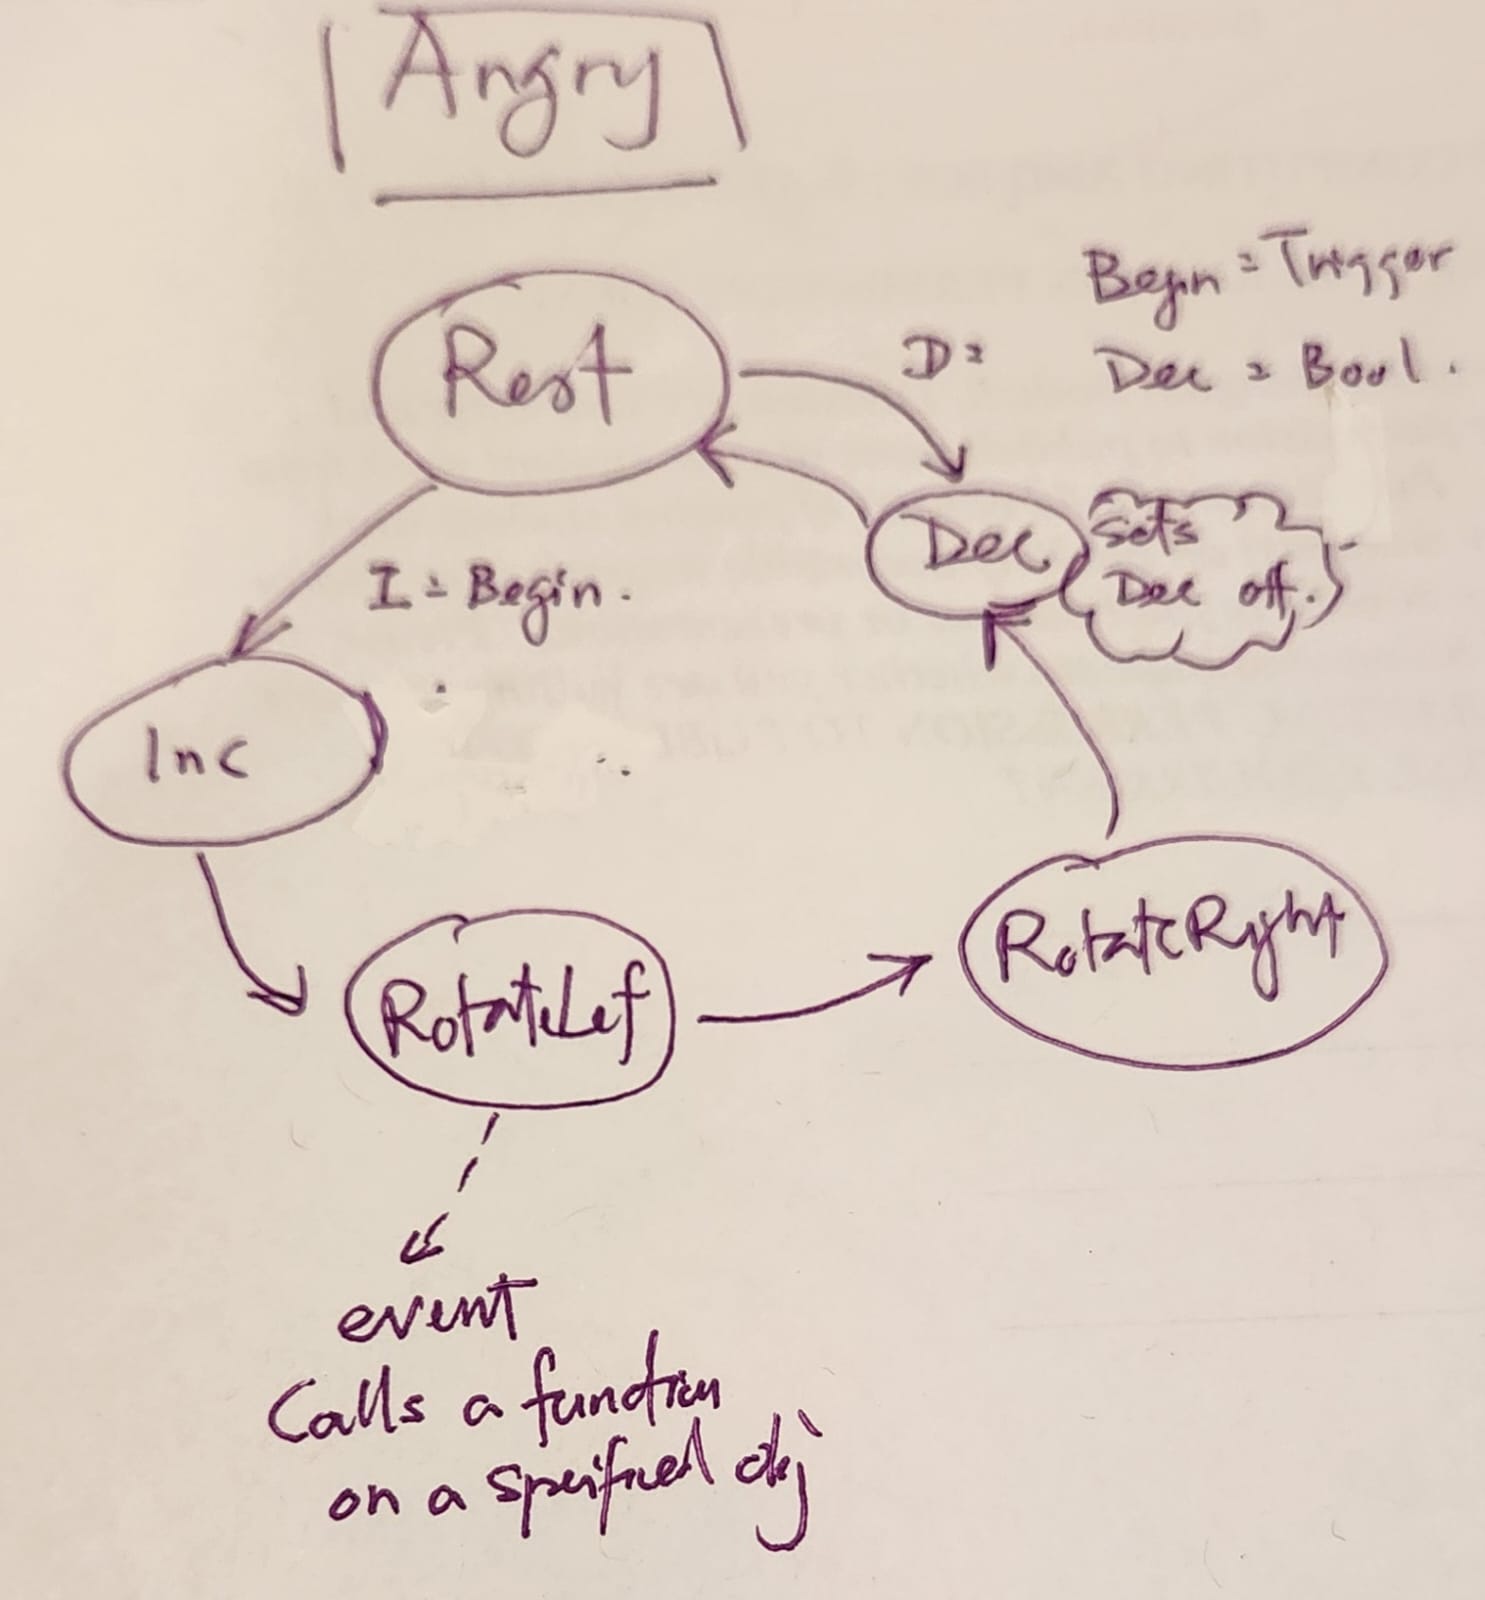 Angry
Begin = Trigger
Dec = Bool.
D =
Rest
Dec
Sets
Dec off.
I = Begin.
Inc
RotateRight
RotateLef
event
Calls a function
on a specified obj